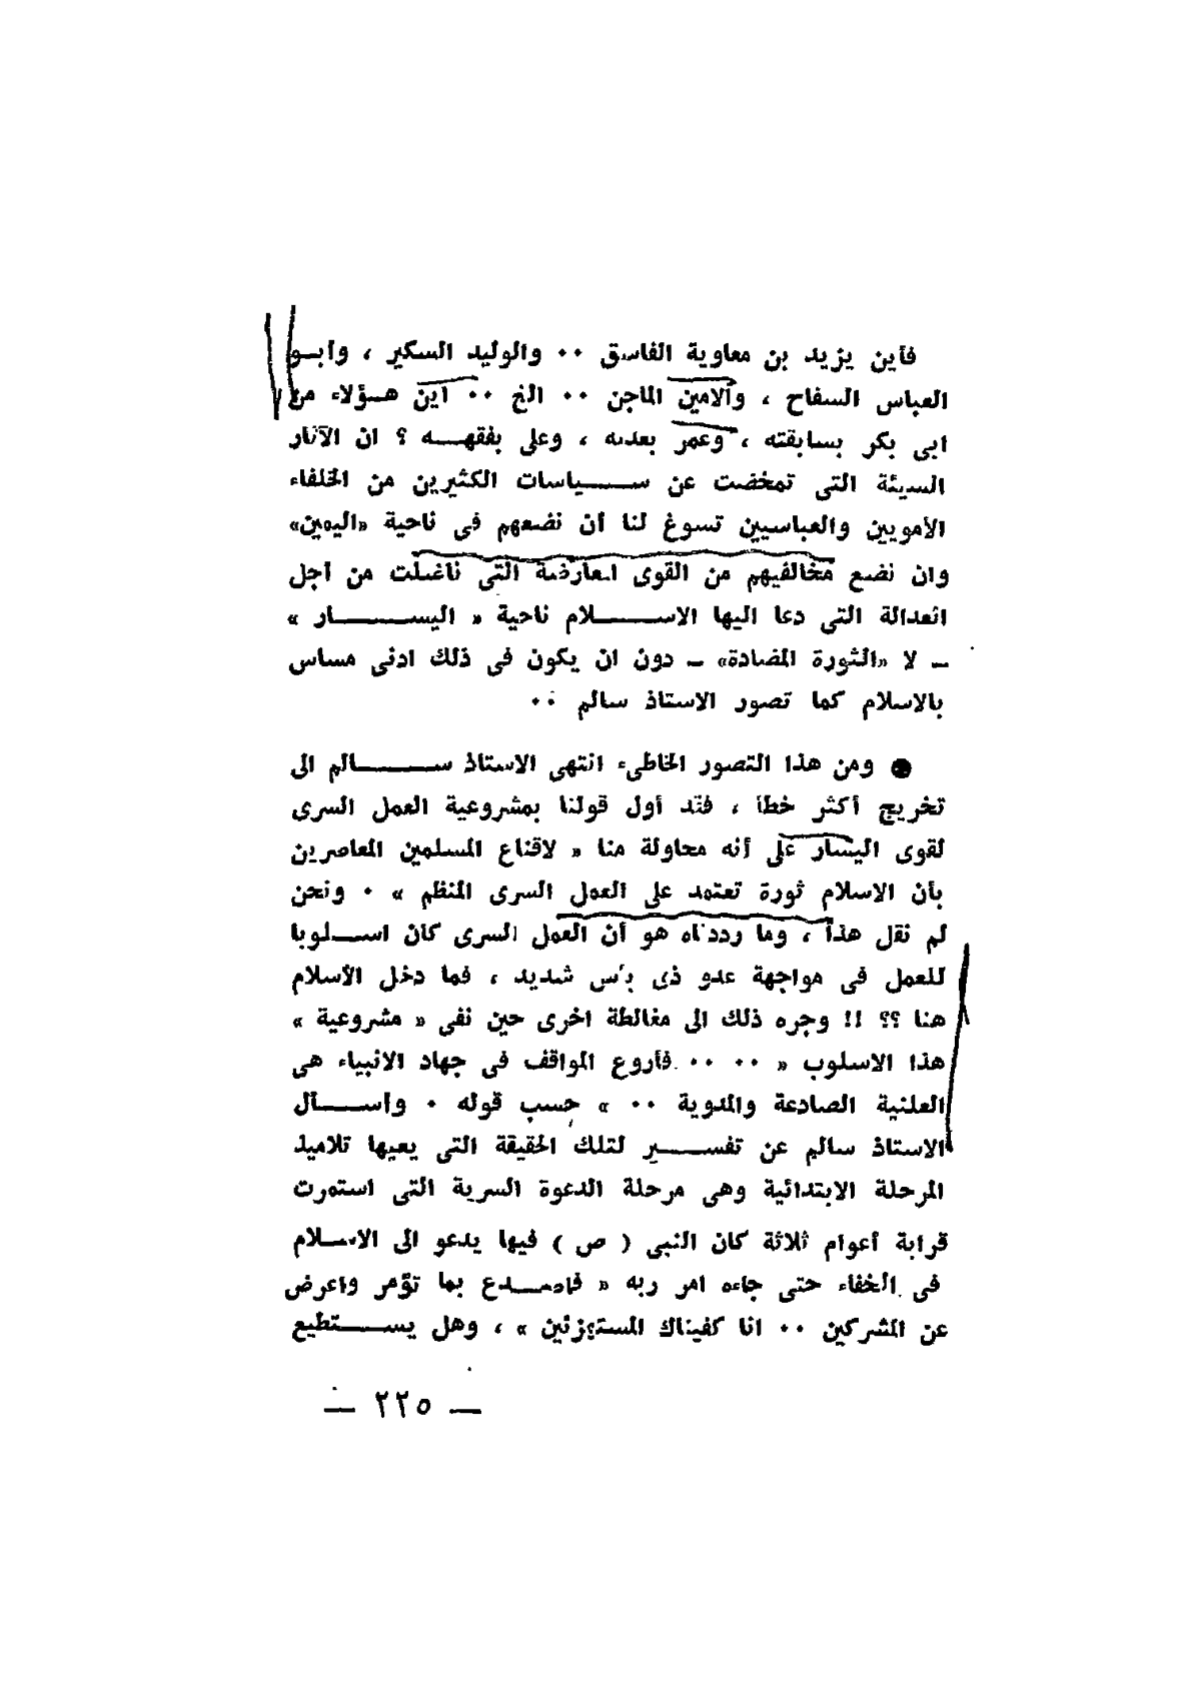 فأين يزيد بن معاوية الفاسق ٠٠ والوليد السكير ، وأبــو
العباس السفاح ، والامين الماجن ٠٠ الخ ٠٠ أين هــؤلاء من
ابى بكر بسابقته ، وعمر بعدله ، وعلى بفقهــه ؟ ان الآثار
السيئة التى تمخضت عن ســـياسات الكثيرين من الخلفاء
الأمويين والعباسيين تسوغ لنا أن نضعهم فى ناحية «اليمين»
وان نضع مخالفيهم من القوى المعارضة التى ناضلت من أجل
العدالة التى دعا اليها الاســـلام ناحية « اليســـار »
ــ لا «الثورة المضادة» ــ دون ان يكون فى ذلك ادنى مساس
بالاسلام كما تصور الاستاذ سالم ٠٠
● ومن هذا التصور الخاطىء انتهى الاستاذ ســـالم الى
تخريج أكثر خطأ ، فقد أول قولنا بمشروعية العمل السرى
لقوى اليسار على أنه محاولة منا « لاقناع المسلمين المعاصرين
بأن الاسلام ثورة تعتمد على العمل السرى المنظم » ٠ ونحن
لم نقل هذا ، وما رددناه هو أن العمل السرى كان اســلوبا
للعمل فى مواجهة عدو ذى بأس شديد ، فما دخل الأسلام
هنا ؟؟ !! وجره ذلك الى مغالطة اخرى حين نفى « مشروعية »
هذا الاسلوب « ٠٠ ٠٠ فأروع المواقف فى جهاد الانبياء هى
العلنية الصادعة والمدوية ٠٠ » حسب قوله ٠ وأســـأل
الاستاذ سالم عن تفســـير لتلك الحقيقة التى يعيها تلاميذ
المرحلة الابتدائية وهى مرحلة الدعوة السرية التى استمرت
قرابة أعوام ثلاثة كان النبى ( ص ) فيها يدعو الى الاســلام
فى الخفاء حتى جاءه امر ربه « فاصــدع بما تؤمر واعرض
عن المشركين ٠٠ انا كفيناك المستهزئين » ، وهل يســـتطيع
ــ ٢٢٥ ــ